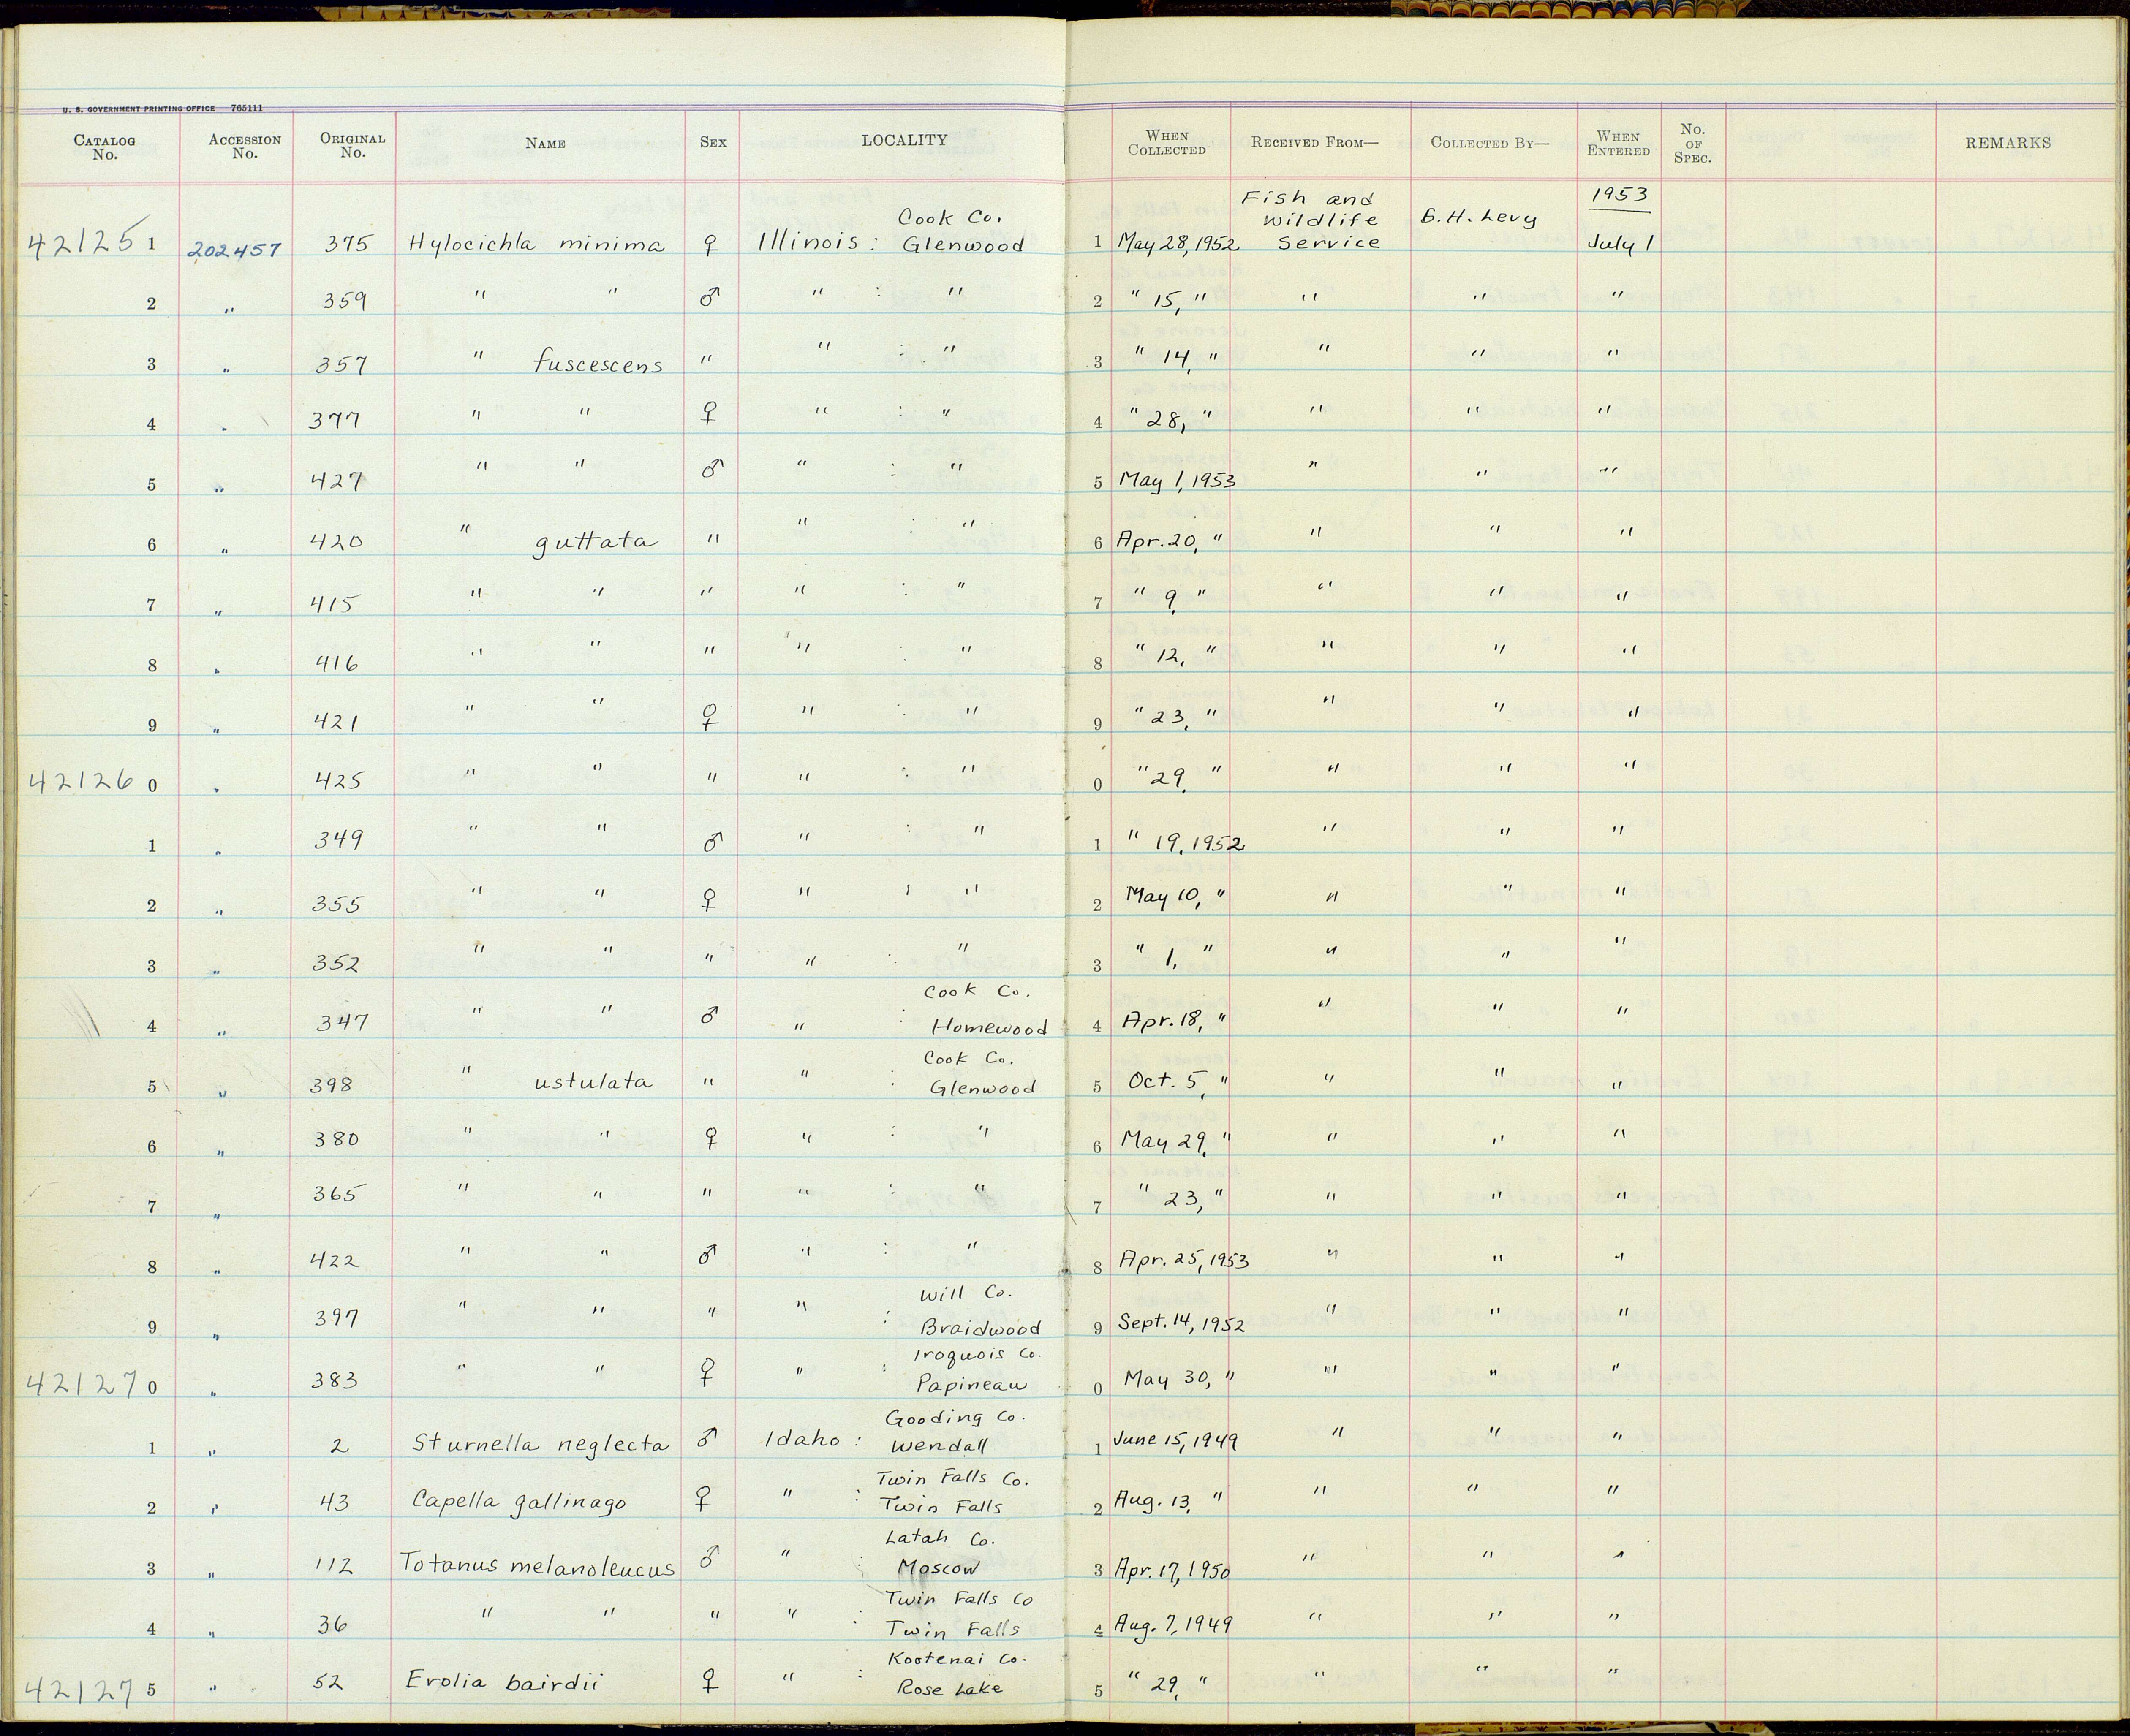 U. S. GOVERNMENT PRINTING OFFICE 765111
CATALOG No. ACCESSION No. ORIGINAL No. NAME SEX LOCALITY WHEN COLLECTED RECEIVED FROM— COLLECTED BY— WHEN ENTERED No. OF SPEC. REMARKS
42125 1 202457 375 Hylocichla minima ♀ Illinois : Cook Co. Glenwood 1 May 28, 1952 Fish and Wildlife Service S. H. Levy 1953 July 1
2 " 359 " " ♂ " : " 2 " 15, " " " "
3 " 357 " fuscescens " " : " 3 " 14, " " " "
4 " 377 " " ♀ " : " 4 " 28, " " " "
5 " 427 " " ♂ " : " 5 May 1, 1953 " " "
6 " 420 " guttata " " : " 6 Apr. 20, " " " "
7 " 415 " " " " : " 7 " 9, " " " "
8 " 416 " " " " : " 8 " 12, " " " "
9 " 421 " " ♀ " : " 9 " 23, " " " "
42126 0 " 425 " " " " : " 0 " 29, " " " "
1 " 349 " " ♂ " : " 1 " 19, 1952 " " "
2 " 355 " " ♀ " : " 2 May 10, " " " "
3 " 352 " " " " : " 3 " 1, " " " "
4 " 347 " " ♂ " : Cook Co. Homewood 4 Apr. 18, " " " "
5 " 398 " ustulata " " : Cook Co. Glenwood 5 Oct. 5, " " " "
6 " 380 " " ♀ " : " 6 May 29, " " " "
7 " 365 " " " " : " 7 " 23, " " " "
8 " 422 " " ♂ " : " 8 Apr. 25, 1953 " " "
9 " 397 " " " " : Will Co. Braidwood 9 Sept. 14, 1952 " " "
42127 0 " 383 " " ♀ " : Iroquois Co. Papineau 0 May 30, " " " "
1 " 2 Sturnella neglecta ♂ Idaho : Gooding Co. Wendall 1 June 15, 1949 " " "
2 " 43 Capella gallinago ♀ " : Twin Falls Co. Twin Falls 2 Aug. 13, " " " "
3 " 112 Totanus melanoleucus ♂ " : Latah Co. Moscow 3 Apr. 17, 1950 " " "
4 " 36 " " " " : Twin Falls Co Twin Falls 4 Aug. 7, 1949 " " "
42127 5 " 52 Erolia bairdii ♀ " : Kootenai Co. Rose Lake 5 " 29, " " " "